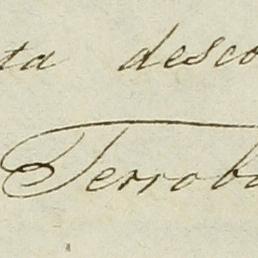 ta desco
Terroba